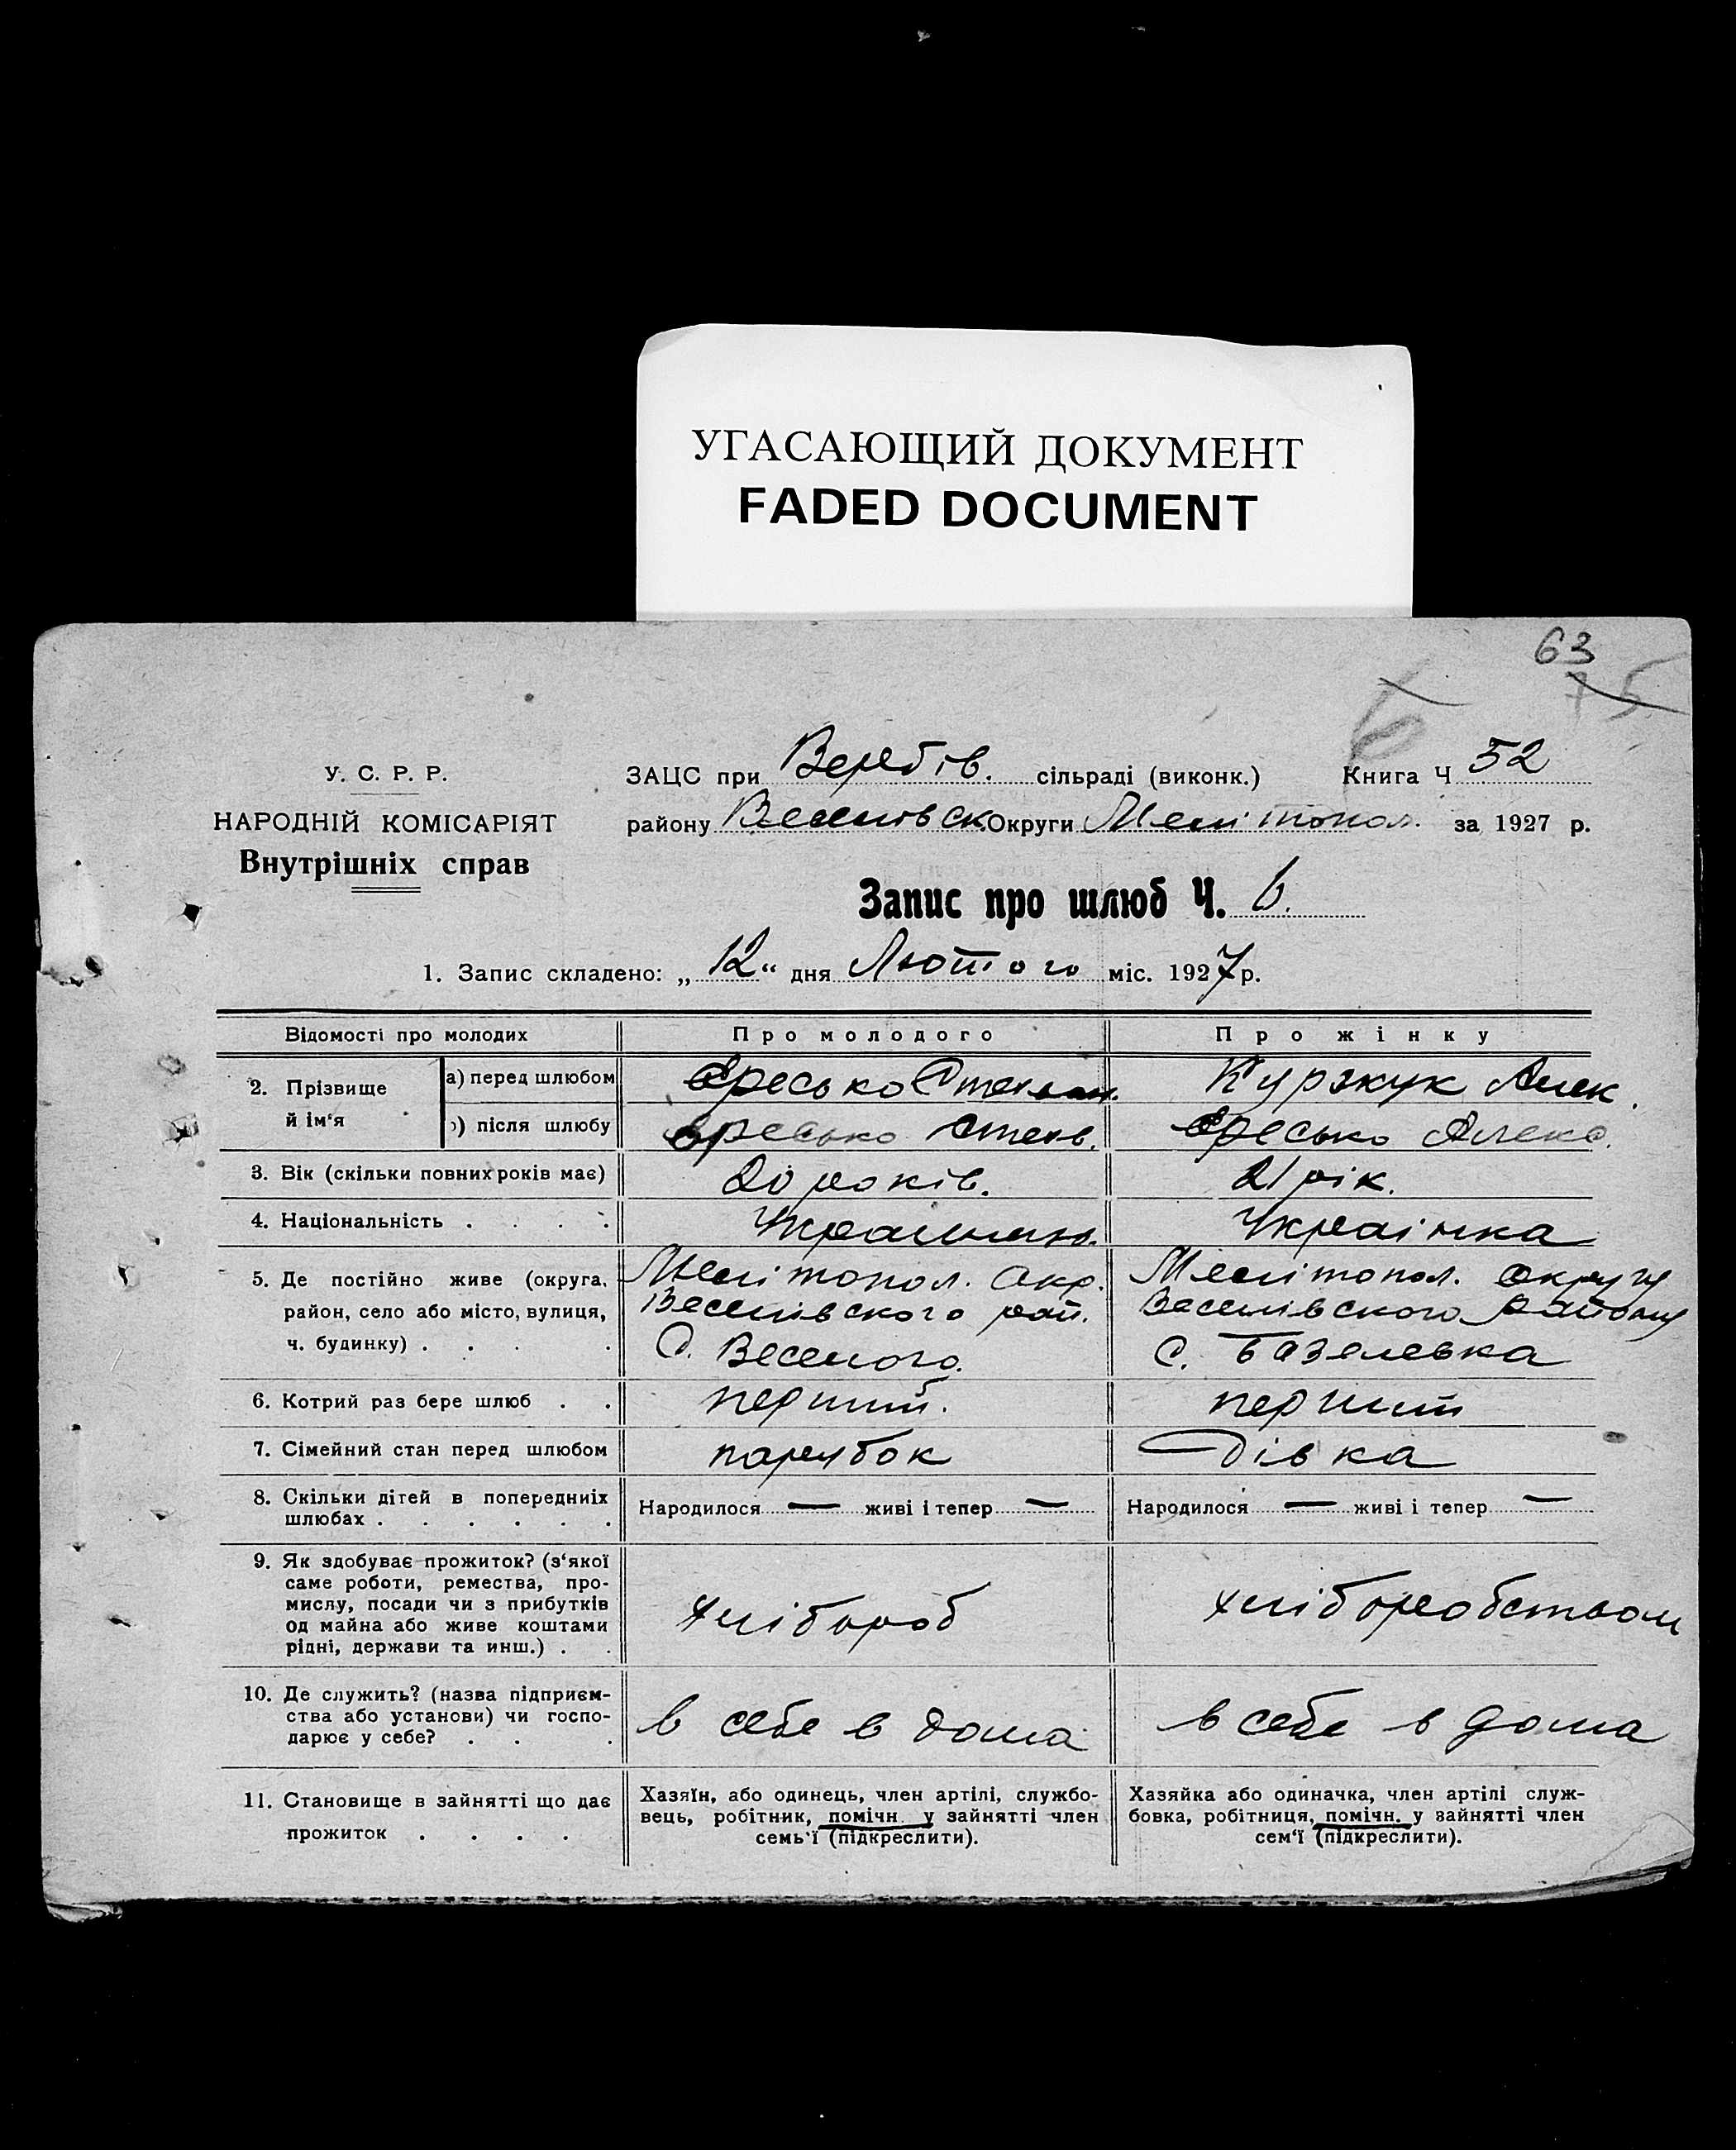 УГАСАЮЩИЙ ДОКУМЕНТ
FADED DOCUMENT
63
75
6
У. С. Р. Р.
НАРОДНІЙ КОМІСАРІЯТ
Внутрішніх справ
ЗАЦС при Вербів. сільраді (виконк.) Книга Ч 52
району Веселівськ Округи Мелітопол. за 1927 р.
Запис про шлюб Ч. 6.
1. Запис складено: „12“ дня Лютого міс. 1927 р.
Відомості про молодих Про молодого Про жінку
2. Прізвище й ім‘я
а) перед шлюбом Єресько Степан. Куржук Алек.
б) після шлюбу Єресько Степ. Єресько Алекс.
3. Вік (скільки повних років має) 20 років. 21 рік.
4. Національність . . . . Українець. Українка
5. Де постійно живе (округа, район, село або місто, вулиця, ч. будинку) . . . .
Мелітопол. Окр.
Веселівського рай.
С. Веселого.
Мелітопол. округу
Веселівського району
С. Базелевка
6. Котрий раз бере шлюб . . перший. перший
7. Сімейний стан перед шлюбом парубок дівка
8. Скільки дітей в попередниіх
шлюбах . . . . . .
Народилося — живі і тепер —
Народилося — живі і тепер —
9. Як здобуває прожиток? (з‘якої
саме роботи, ремества, про-
мислу, посади чи з прибутків
од майна або живе коштами
рідні, держави та инш.) . .
хлібороб
хліборобством
10. Де служить? (назва підприєм-
ства або установи) чи госпо-
дарює у себе? . . .
в себе в дома
в себе в дома
11. Становище в зайнятті що дає
прожиток . . . .
Хазяїн, або одинець, член артілі, службо-
вець, робітник, помічн. у зайнятті член
семь‘ї (підкреслити).
Хазяйка або одиначка, член артілі служ-
бовка, робітниця, помічн. у зайнятті член
сем‘ї (підкреслити).